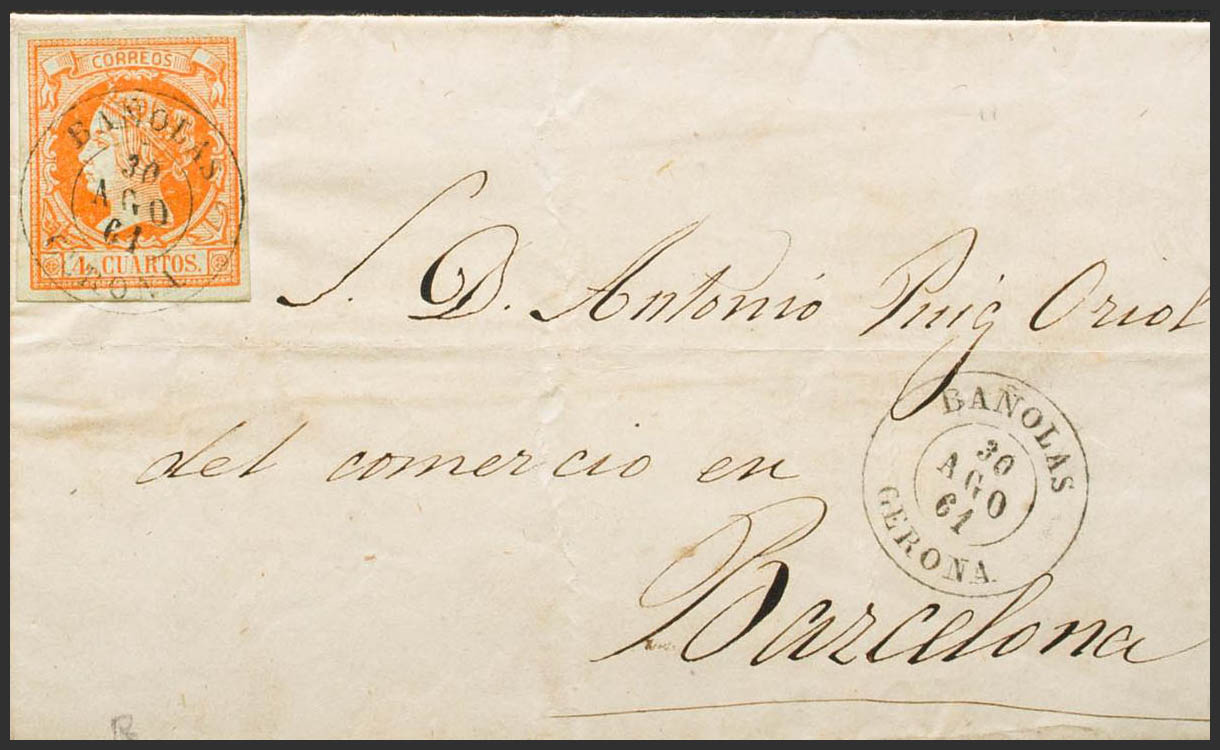 CORREOS
BAÑOLAS
30
AGO
61
GERONA
4 CUARTOS.
S. D. Antonio Puig Oriol
del comercio en
Barcelona
BAÑOLAS
30
AGO
61
GERONA.